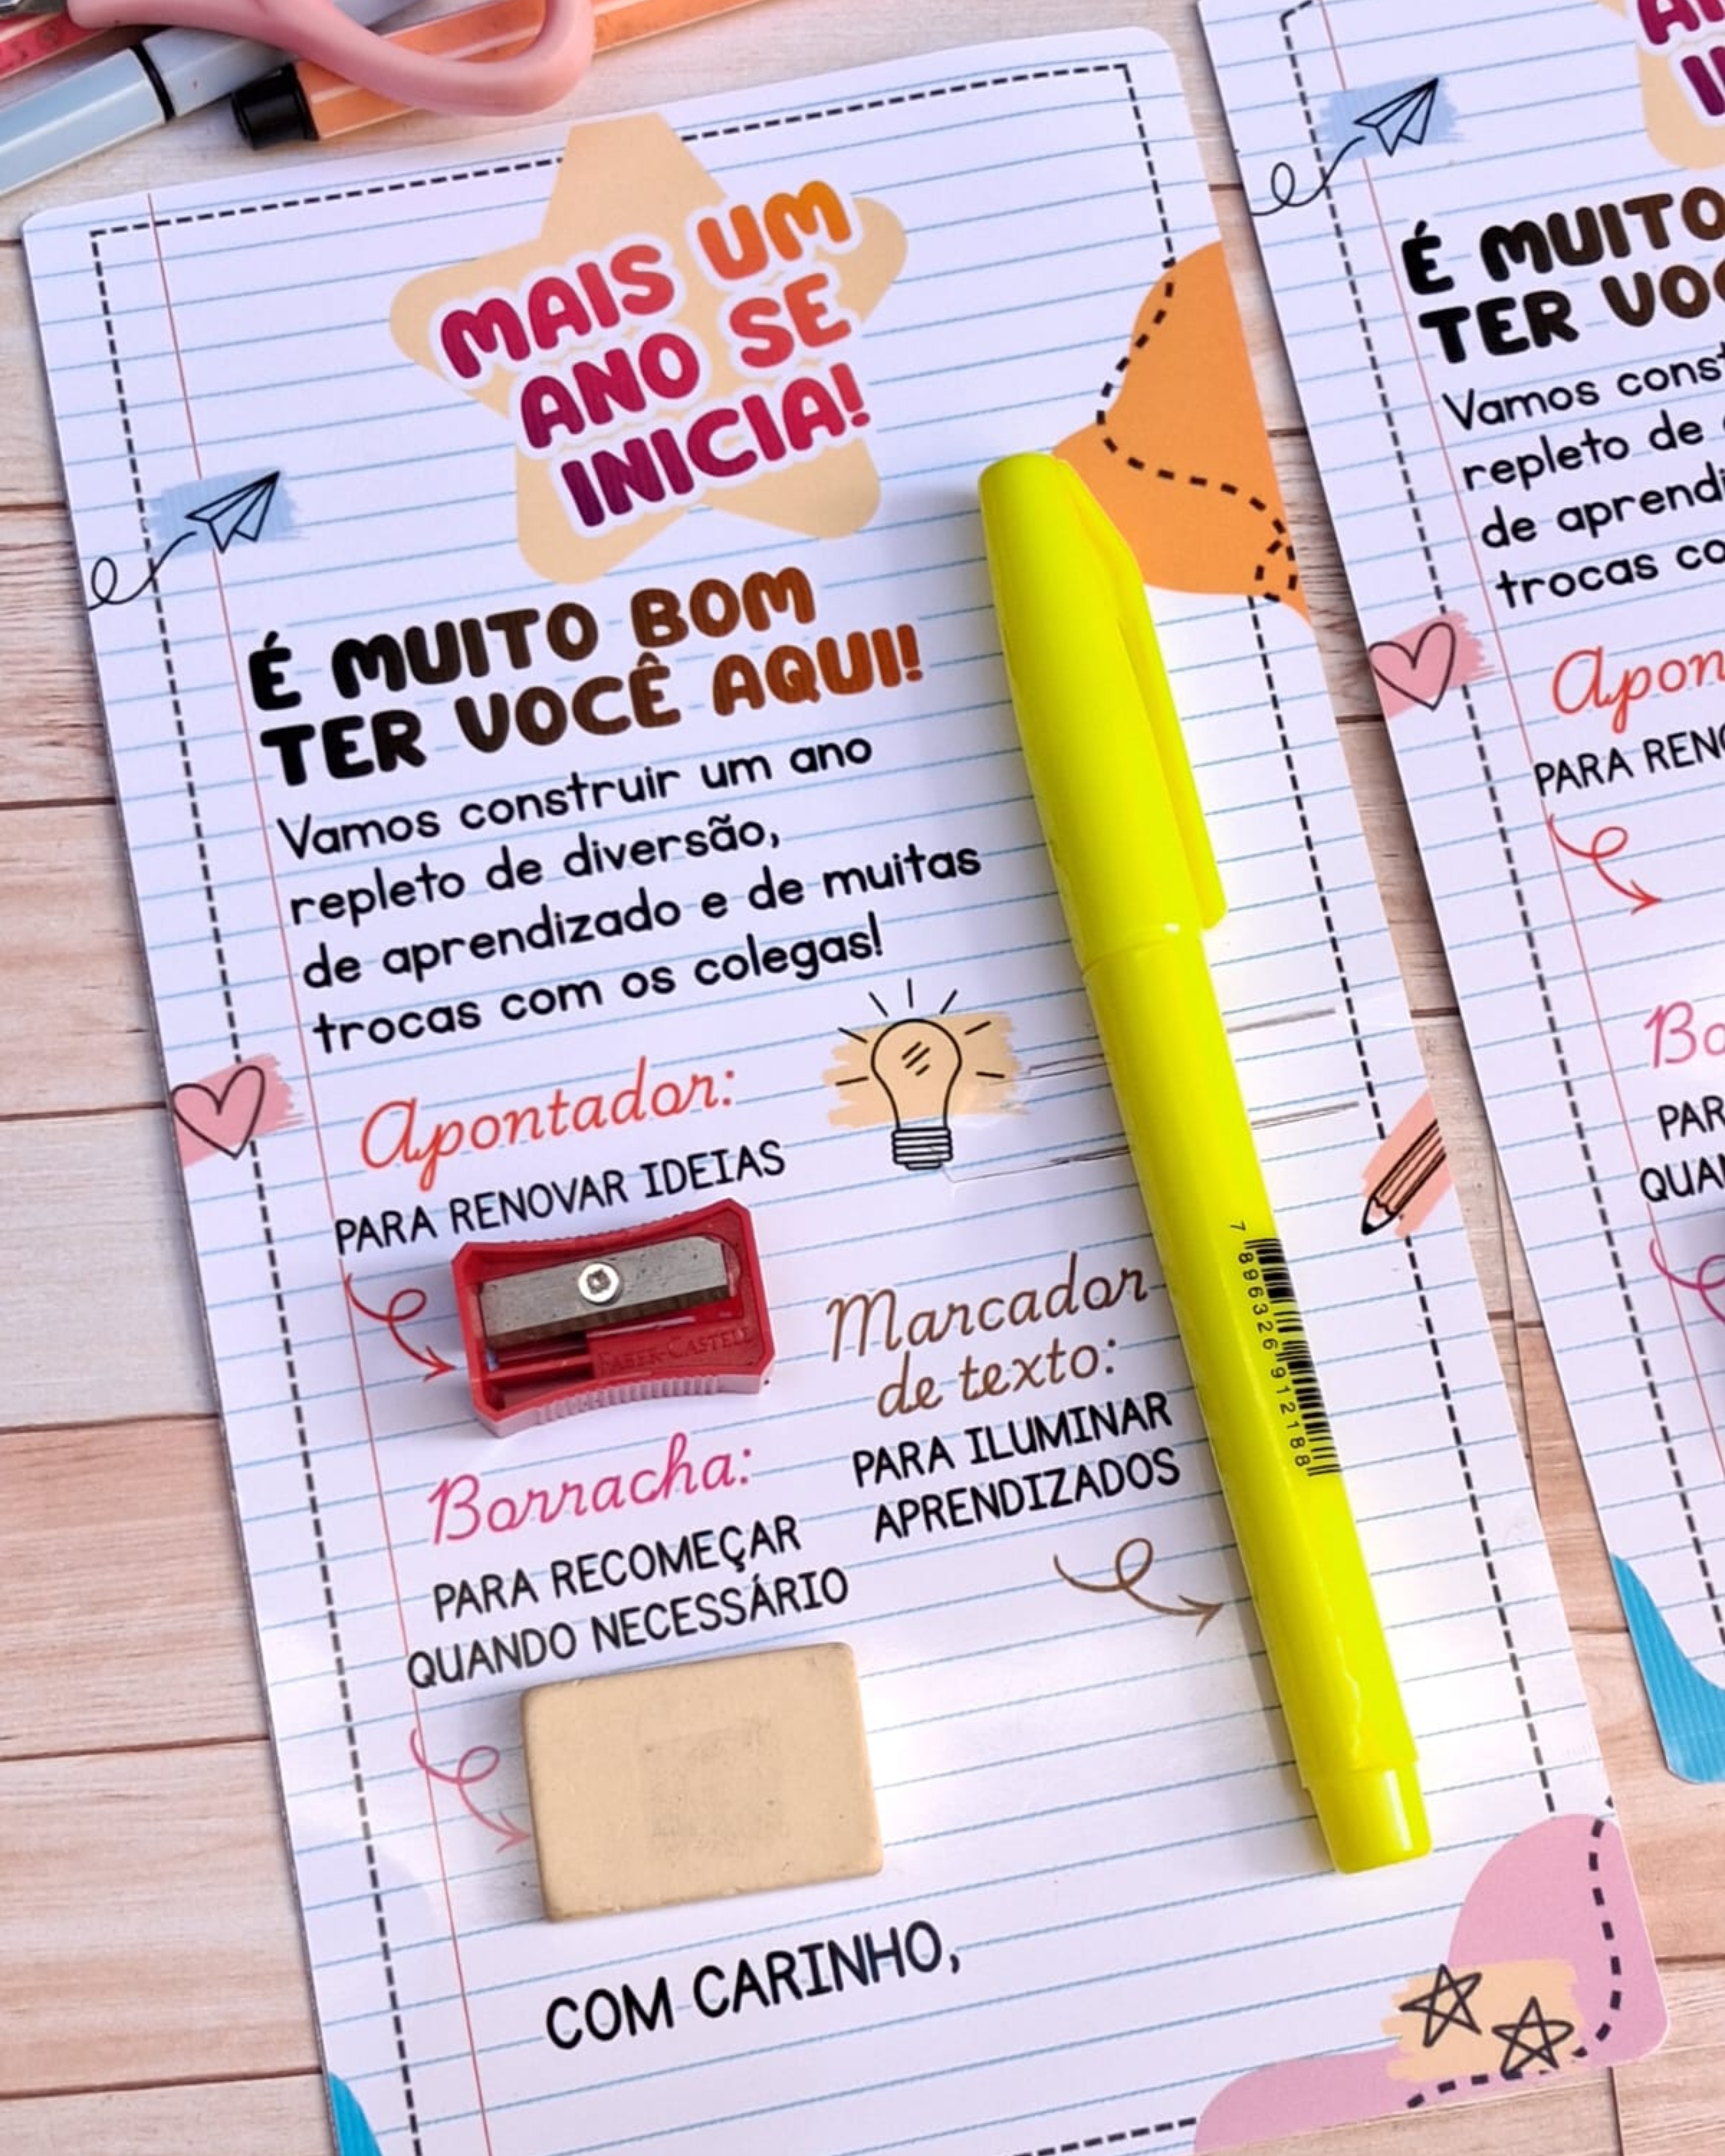 MAIS UM
ANO SE
INICIA!
É MUITO BOM
TER VOCÊ AQUI!
Vamos construir um ano
repleto de diversão,
de aprendizado e de muitas
trocas com os colegas!
Apontador:
PARA RENOVAR IDEIAS
FABER-CASTELL
Marcador
de texto:
PARA ILUMINAR
APRENDIZADOS
7 896326 912188
Borracha:
PARA RECOMEÇAR
QUANDO NECESSÁRIO
COM CARINHO,
É MUITO
TER
Vamos
repleto de
de
trocas
PARA